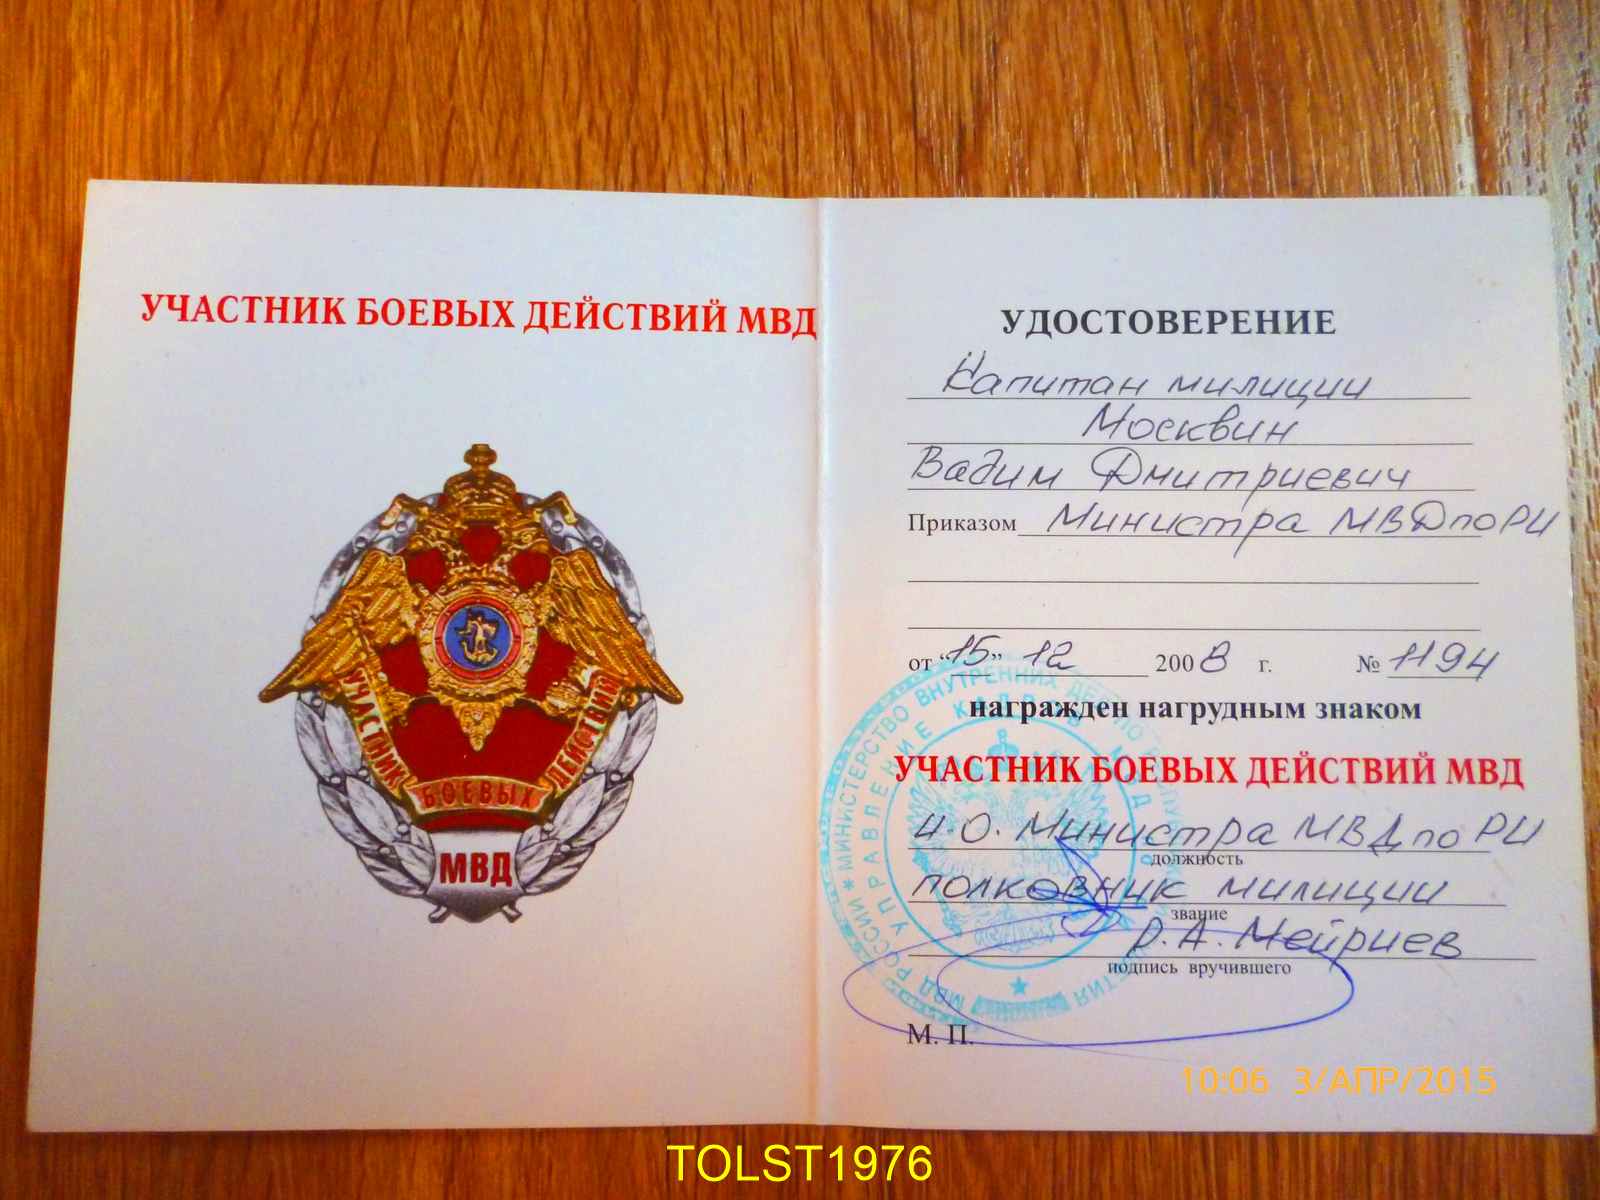 УЧАСТНИК БОЕВЫХ ДЕЙСТВИЙ МВД
УЧАСТНИК БОЕВЫХ ДЕЙСТВИЙ
МВД
УДОСТОВЕРЕНИЕ
Капитан милиции
Москвин
Вадим Дмитриевич
Приказом Министра МВД по РИ
от “15” 12 2008 г. № 1194
награжден нагрудным знаком
УЧАСТНИК БОЕВЫХ ДЕЙСТВИЙ МВД
И.О. Министра МВД по РИ
должность
полковник милиции
звание
Р.А. Мейриев
подпись вручившего
М. П.
МИНИСТЕРСТВО ВНУТРЕННИХ ДЕЛ ПО
МВД РОССИИ
УПРАВЛЕНИЕ КАДРОВ
10:06 3/АПР/2015
TOLST1976